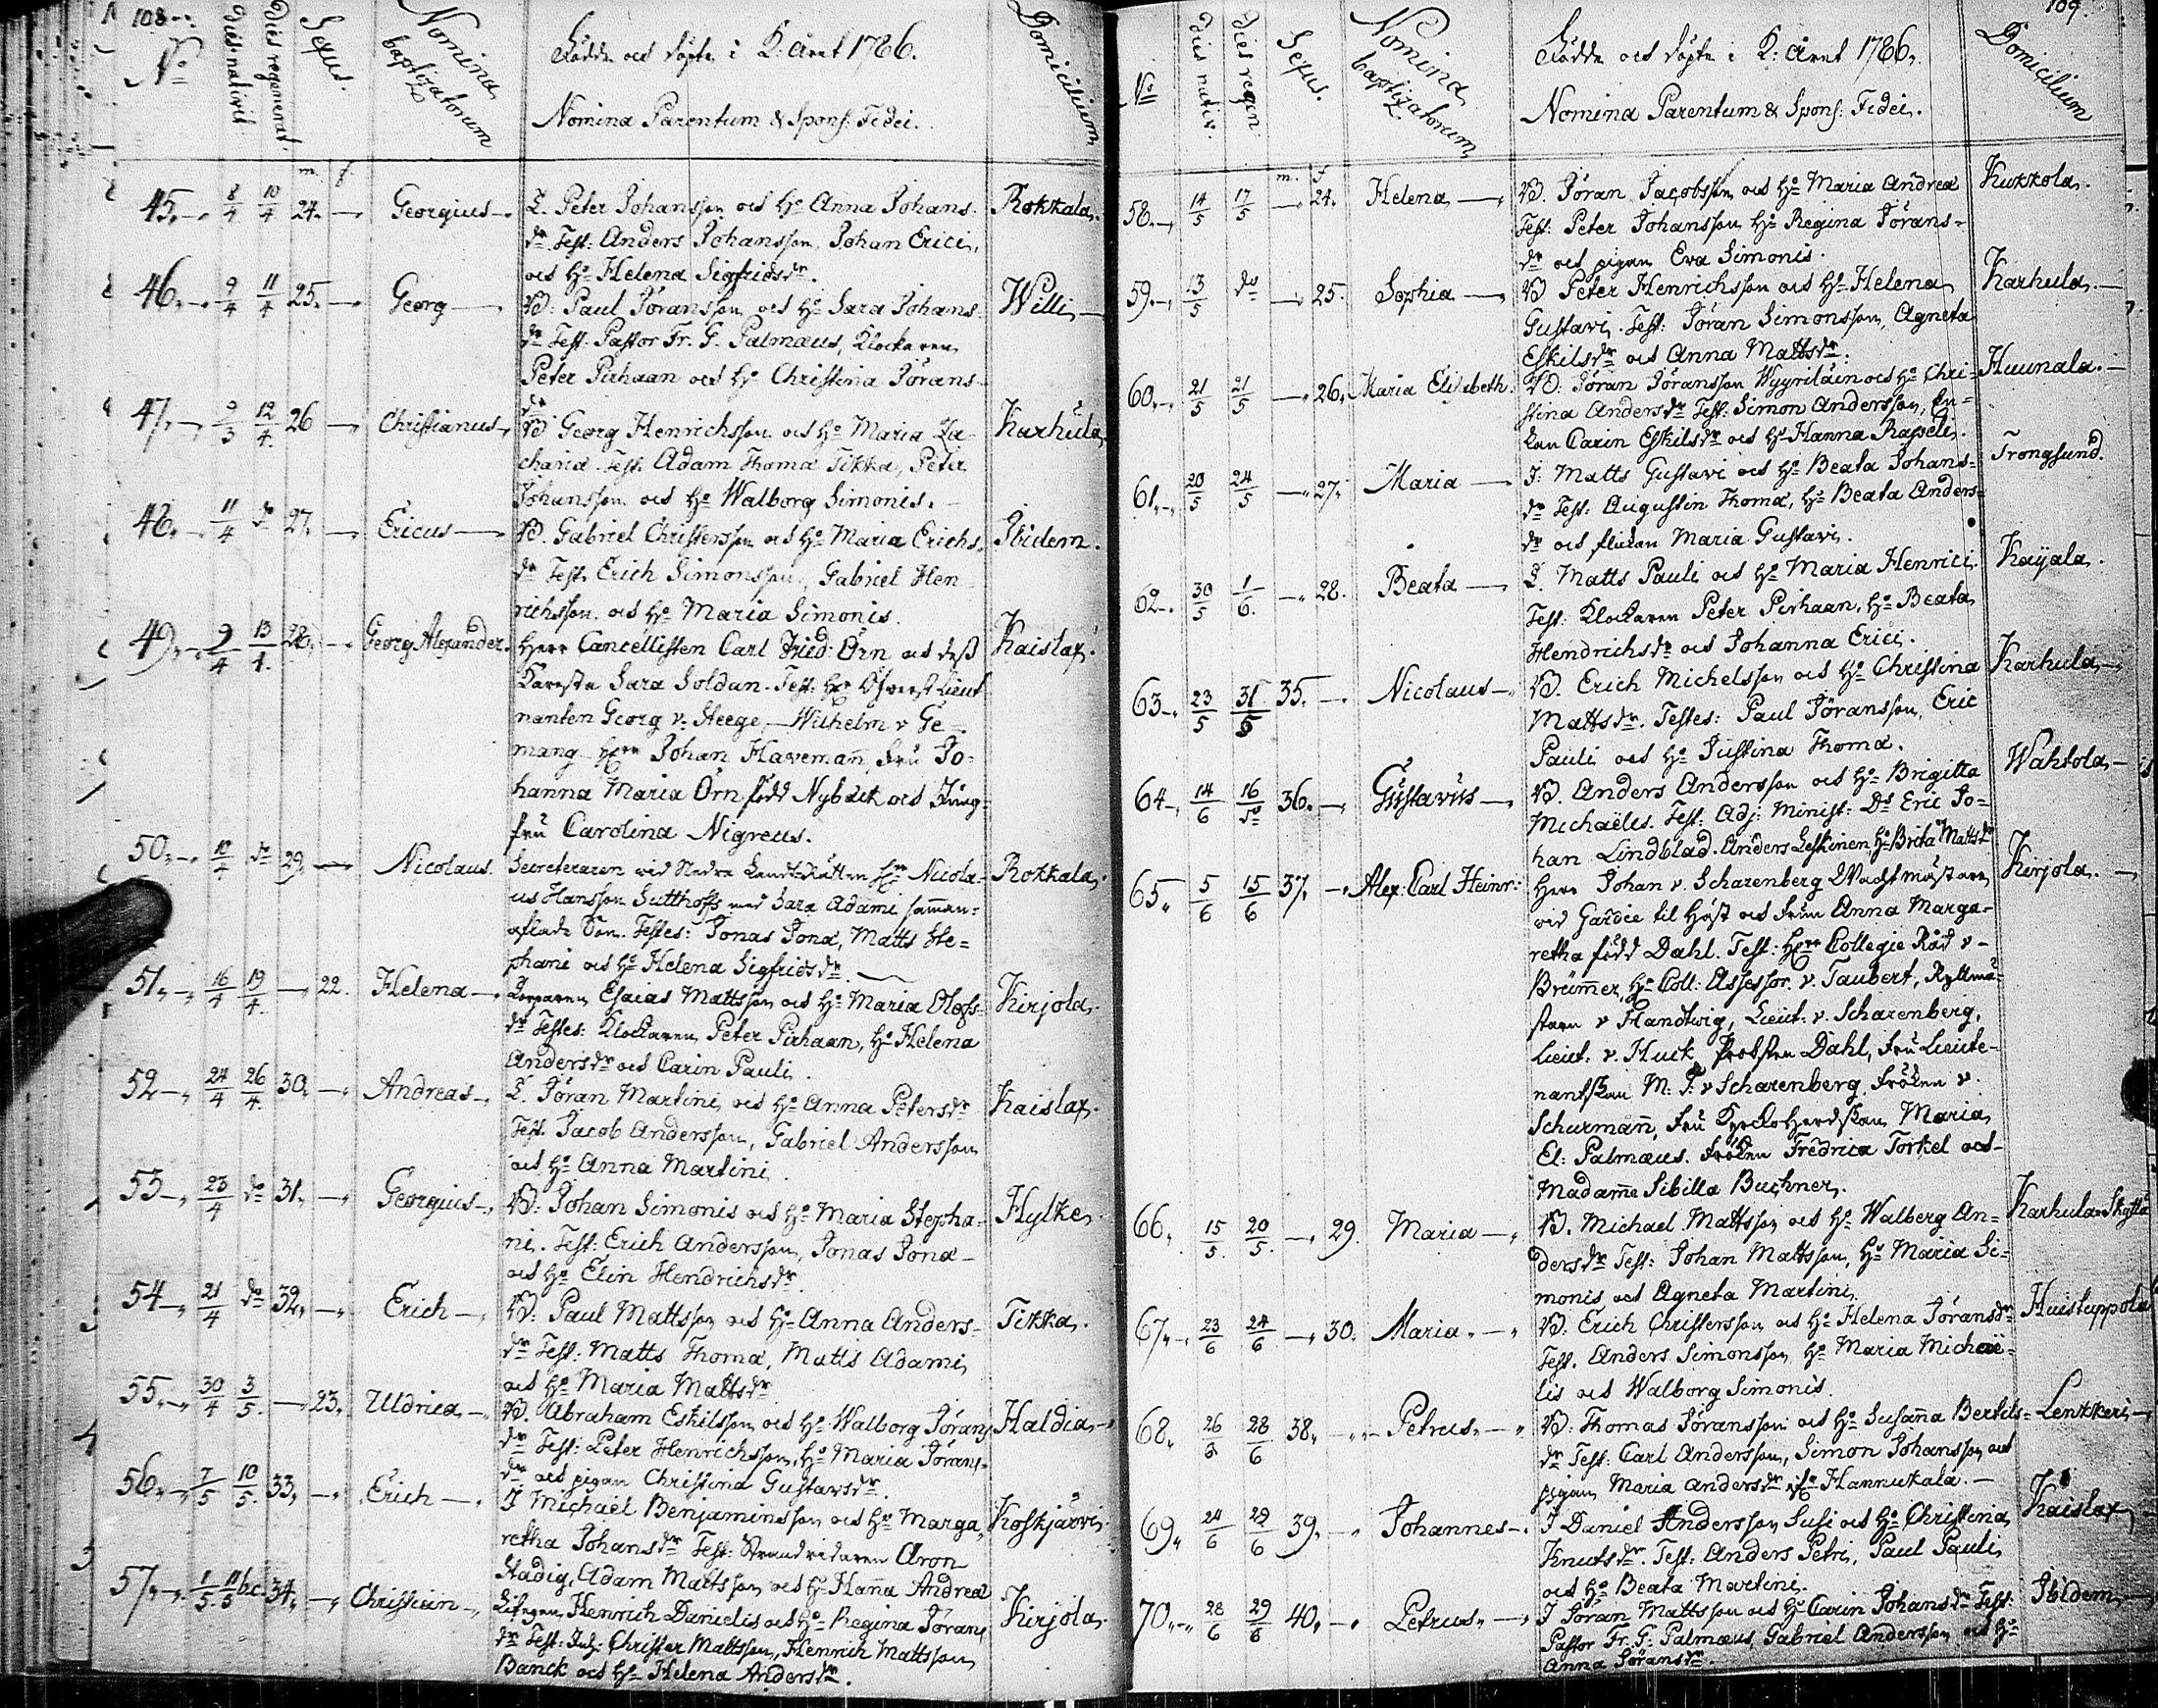 108.
No
dies nativit.
dies regenerat.
Sexus.
Nomina baptizatorum
Födde och döpte i K: Året 1786.
Nomina Parentum & Spons: Fidei.
Domicilium
m. f.
45. 8/4 10/4 24. — Georgius — I. Peter Johansson och Ho Anna Johans- Rokkala.
dr Test: Anders Johansson, Johan Erici,
och Ho Helena Sigfridsdr.
46. 9/4 11/4 25. — Georg — B: Paul Jöransson och Ho Sara Johans Willi —
dr Test: Pastor Fr. G. Palmæus, Klockaren
Peter Pirhaan och Ho Christina Jörans-
dr
47. 9/3 12/4. 26 — Christianus B Georg Henrichsson och Ho Maria Za- Karhula
chariæ. Test: Adam Thomæ Tikka, Peter
Johansson och Ho Walborg Simonis.
48. 11/4 do 27. — Ericus — B. Gabriel Christersson och Ho Maria Erichs- Ibidem.
dr Test. Erich Simonsson, Gabriel Hen
richsson och Ho Maria Simonis.
49. 9/4 13/4. 28. — Georg Alexander. Herr Cancellisten Carl Fried: Örn och dess Kaislax.
Käresta Sara Soldan. Test: Hrr Öfverst Lieut
nanten Georg v. Steege, Wilhelm v Ge-
mang Herr Johan Havemañ, Fru Jo-
hanna Maria Örn född Nybäck och Jung-
fru Carolina Nigreus.
50. 10/4 do 29. — Nicolaus. Secreteraren wid Nedre Landtsrätten Hrr Nicola- Rokkala.
us Hansson Sutthoffs med Sara Adami samman-
aflade Son. Testes: Jonas Jonæ, Matts Ste-
phani och Ho Helena Sigfridsdr.
51. 16/4 19/4. — 22. Helena — Esaias Mattsson och Ho Maria Olofs- Kirjola.
dr Testes: Klockaren Peter Pirhaan, Ho Helena
Andersdr och Carin Pauli.
52 24/4 26/4. 30. — Andreas — I. Jöran Martini och Ho Anna Petersdr Kaislax.
Test. Jacob Andersson, Gabriel Andersson
och Ho Anna Martini.
53 23/4 do 31. — Georgius — B: Johan Simonis och Ho Maria Stepha- Hylke.
ni. Test: Erich Andersson, Jonas Jonæ
och Ho Elin Hendrichsdr.
54 21/4 do 32. — Erich — B: Paul Mattsson och Ho Anna Anders- Tikka.
dr Test: Matts Thomæ, Matts Adami,
och Ho Maria Mattsdr
55. 30/4 3/5. — 23. Uldrica — B. Abraham Eskilsson och Ho Walborg Jörans Haldia —
dr Test: Peter Henrichsson, Ho Maria Jörans-
dr och pigan Christina Gustavsdr.
56. 7/5 10/5. 33. — Erich — I Michaël Benjaminsson och Ho Marga- Koskjärvi.
retha Johansdr Test: Strandridaren Aron
Stadig, Adam Mattsson och Ho Hanna Andreæ
57. 1/5. 11/5 34. — Christian — Henrich Danielis och Ho Regina Jörans Kirjola.
dr Test: Christer Mattsson, Henrich Mattsson
Banck och Ho Helena Andersdr.
109.
No
dies nativ.
dies regen:
Sexus.
Nomina baptizatorum
Födde och döpte i K: Året 1786.
Nomina Parentum & Spons: Fidei.
Domicilium
m. f
58. 14/5 17/5 — 24. Helena — B. Jöran Jacobsson och Ho Maria Andreæ Kukkola.
Test: Peter Johansson Ho Regina Jörans-
dr och pigan Eva Simonis.
59. 13/5 do — 25. Sophia — B Peter Henrichsson och Ho Helena Karhula. —
Gustavi. Test: Jöran Simonsson, Agneta
Eskilsdr och Anna Mattsdr.
60. 21/5 21/5 — 26. Maria Elisabeth. B. Jöran Jöransson Wyyriläin och Ho Chri- Huunala. —
stina Andersdr Test: Simon Andersson, En-
kan Carin Eskilsdr och Ho Hanna Rasseli.
61. 20/5 24/5 — 27. Maria — I: Matts Gustavi och Ho Beata Johans- Trongsund.
dr Test: Augustin Thomæ, Ho Beata Anders-
dr och flickan Maria Gustavi.
62. 30/5 1/6. — 28. Beata — I. Matts Pauli och Ho Maria Henrici Kaÿala.
Test: Klockaren Peter Pirhaan, Ho Beata
Hendrichsdr och Johanna Erici.
63 23/5 31/5 35. — Nicolaus — B. Erich Michelsson och Ho Christina Karhula —
Mattsdr. Testes: Paul Jöransson, Eric
Pauli och Ho Justina Thomæ.
64 14/6 16/do 36. — Gustavus — B. Anders Andersson och Ho Brigitta Wahtola. —
Michaëlis. Test: Adj: Minist: Ds Eric Jo-
han Lindblad. Anders Leskinen Ho Brita Mattsdr
65. 5/6 15/6 37. — Alex: Carl Heinr: Herr Johan v. Scharenberg Wachtmästare Kirjola. —
vid Gardie til Häst och Frun Anna Marga-
retha född Dahl. Test: Herr Collegie Råd v-
Brümmer, Hr Coll: Assessor v. Taubert, Ryttmä-
staren v Handtwig, Lieut: v. Scharenberg,
Lieut. v. Huck, Probsten Dahl, Fru Lieute-
nantskan M: J: v Scharenberg. Fröken v.
Schurmañ, Fru Kyrckoherdskan Maria
El: Palmæus. Fröken Fredrica Torkel och
Madame Sibilla Buchner.
66. 15/5. 20/5. — 29. Maria — B. Michael Mattsson och Ho Walberg An- Karhula Skyttä
dersdr Test: Johan Mattsson, Ho Maria Si-
monis och Agneta Martini.
67. 23/6 24/6 — 30. Maria — B: Erich Christersson och Ho Helena Jöransdr Huistuppola
Test. Anders Simonsson Ho Maria Michaë-
lis och Walborg Simonis.
68. 26/6 28/6 38. — Petrus — B: Thomas Jöransson och Ho Susaña Bertils- Lenkkeri —
dr Test: Carl Andersson, Simon Johansson och
pigan Maria Andersdr Hannukala. —
69. 24/6 29/6 39. — Johannes — I Daniel Andersson Susi och Ho Christina Kaislax
Knutsdr. Test: Anders Petri, Paul Pauli,
och Ho Beata Martini.
70. 28/6 29/6 40. — Petrus — I Jöran Mattsson och Ho Carin Johansdr Test: Ibidem. —
Pastor Fr. G: Palmæus, Gabriel Andersson och Ho
Anna Jöransdr.